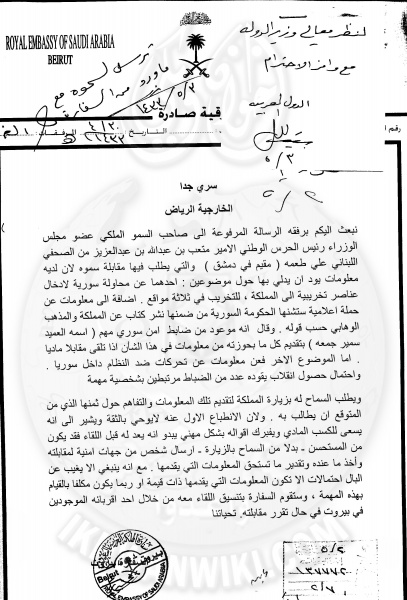 ROYAL EMBASSY OF SAUDI ARABIA
BEIRUT
لنظر معالي وزير الدولة
مع وافر الاحترام
الدول العربية
قية صادرة
التاريخ
سري جدا
الخارجية الرياض
نبعث اليكم برفقه الرسالة المرفوعة الى صاحب السمو الملكي عضو مجلس
الوزراء رئيس الحرس الوطني الامير متعب بن عبدالله بن عبدالعزيز من الصحفي
اللبناني علي طعمه ( مقيم في دمشق ) والتي يطلب فيها مقابلة سموه لان لديه
معلومات يود ان يدلي بها حول موضوعين : احدهما عن محاولة سورية لادخال
عناصر تخريبية الى المملكة ، للتخريب في ثلاثة مواقع . اضافة الى معلومات عن
حملة اعلامية ستشنها الحكومة السورية من ضمنها نشر كتاب عن المملكة والمذهب
الوهابي حسب قوله . وقال انه موعود من ضابط امن سوري مهم ( اسمه العميد
سمير جمعه ) بتقديم كل ما بحوزته من معلومات في هذا الشأن اذا تلقى مقابلا ماديا
. اما الموضوع الاخر فعن معلومات عن تحركات ضد النظام داخل سوريا .
واحتمال حصول انقلاب يقوده عدد من الضباط مرتبطين بشخصية مهمة
ويطلب السماح له بزيارة المملكة لتقديم تلك المعلومات والتفاهم حول ثمنها الذي من
المتوقع ان يطالب به . ولان الانطباع الاول عنه لايوحي بالثقة ويشير الى انه
يسعى للكسب المادي ويفبرك اقواله بشكل مهني يبدو انه يعد له قبل اللقاء فقد يكون
من المستحسن - بدلا من السماح بالزيارة - ارسال شخص من جهات امنية لمقابلته
وأخذ ما عنده وتقدير ما تستحق المعلومات التي يقدمها . مع انه ينبغي الا يغيب عن
البال احتمالات الا تكون المعلومات التي يقدمها ذات قيمة او ربما يكون مكلفا بالقيام
بهذه المهمة ، وستقوم السفارة بتنسيق اللقاء معه من خلال احد اقربائه الموجودين
في بيروت في حال تقرر مقابلته. تحياتنا